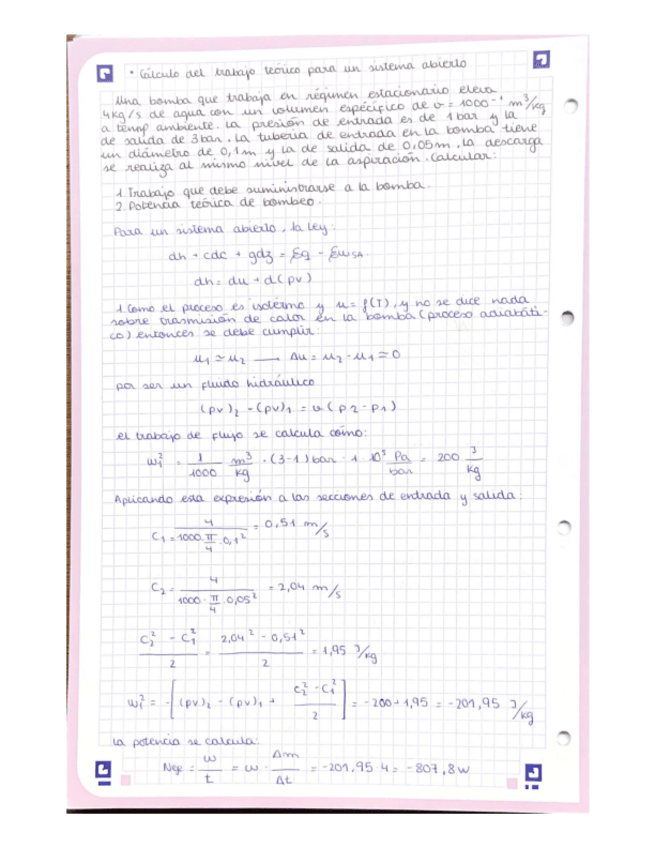 • Cálculo del trabajo teórico para un sistema abierto
Una bomba que trabaja en régimen estacionario eleva
4kg/s de agua con un volumen específico de v = 1000⁻¹ m³/kg
a temp ambiente. La presión de entrada es de 1 bar y la
de salida de 3 bar. La tubería de entrada en la bomba tiene
un diámetro de 0,1 m y la de salida de 0,05 m. La descarga
se realiza al mismo nivel de la aspiración. Calcular:
1. Trabajo que debe suministrarse a la bomba.
2. Potencia teórica de bombeo.
Para un sistema abierto, la ley:
dh + cdc + gdz = δq - δw SA.
dh = du + d(pv)
1. Como el proceso es isotermo y u = f(T), y no se dice nada
sobre trasmisión de calor en la bomba (proceso adiabáti-
co) entonces se debe cumplir:
u₁ ≃ u₂ —— Δu = u₂ - u₁ ≃ 0
por ser un fluido hidráulico
(pv)₂ - (pv)₁ = v(p₂ - p₁)
el trabajo de flujo se calcula cómo:
w₁² = 1/1000 m³/kg · (3-1) bar · 1 10⁵ Pa/bar = 200 J/kg
Aplicando esta expresión a las secciones de entrada y salida:
C₁ = 4/(1000 · π/4 · 0,1²) = 0,51 m/s
C₂ = 4/(1000 · π/4 · 0,05²) = 2,04 m/s
(C₂² - C₁²)/2 = (2,04² - 0,51²)/2 = 1,95 J/kg
w₁² = -[(pv)₂ - (pv)₁ + (C₂² - C₁²)/2] = -200 + 1,95 = -201,95 J/kg
La potencia se calcula:
Neje = w/t = w · Δm/Δt = -201,95 · 4 = -807,8 w